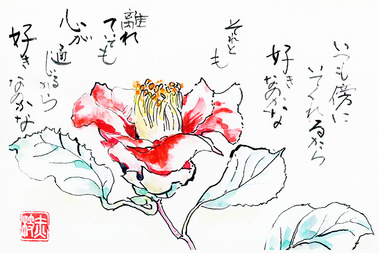 いつも傍に
いてくれるから
好き
なのかな
それと
も
離れ
ていても
心が
通じるから
好き
なのかな